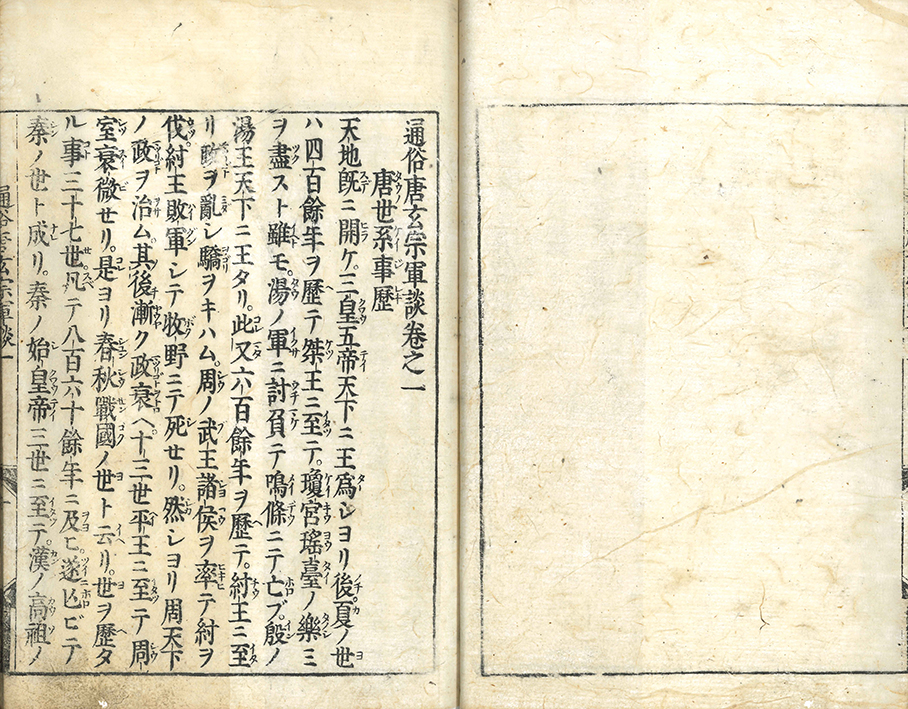 通俗唐玄宗軍談卷之一
唐世系事歷
天地既ニ開ケ。三皇五帝天下ニ王爲シヨリ後夏ノ世
ハ四百餘年ヲ歷テ桀王ニ至テ。瓊宮瑤臺ノ樂ミ
ヲ盡スト雖モ。湯ノ軍ニ討負テ鳴條ニテ亡ブ。殷ノ
湯王天下ニ王タリ。此又六百餘年ヲ歷テ。紂王ニ至
リ政ヲ亂シ驕ヲキハム。周ノ武王諸侯ヲ率テ紂ヲ
伐紂王敗軍シテ牧野ニテ死セリ。然シヨリ周天下
ノ政ヲ治ム其後漸ク政衰へ十三世平王ニ至テ周
室衰微セリ。是ヨリ春秋戰國ノ世ト云リ。世ヲ歷タ
ル事三十七世凡テ八百六十餘年ニ及ヒ。遂ニ亾ビテ
秦ノ世ト成リ。秦ノ始皇帝三世ニ至テ。漢ノ高祖ノ
通俗唐玄宗軍談一